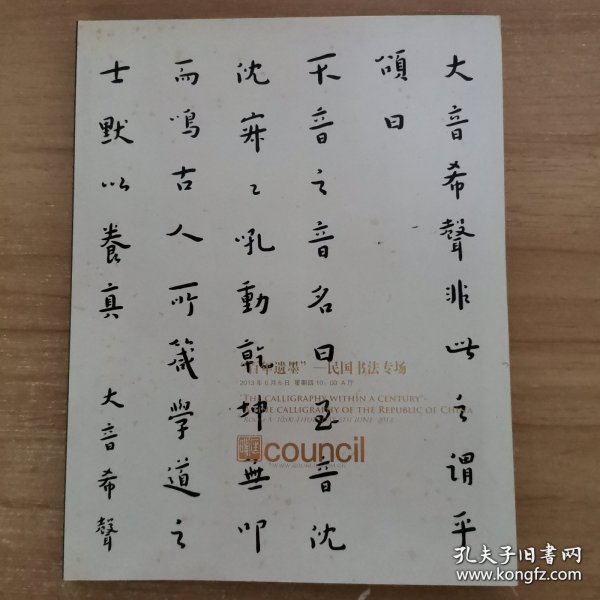 大音希聲非此之謂乎
頌曰
不音之音名曰至音沈
沈寂〻吼動乾坤無叩
而鳴古人所箴學道之
士默以養真
大音希聲
百年遗墨”—民国书法专场
2013年6月6日 星期四 10:00 A厅
"THE CALLIGRAPHY WITHIN A CENTURY"-
CALLIGRAPHY OF THE REPUBLIC OF CHINA
6TH JUNE 2013
council
孔夫子旧书网
www.kongfz.com